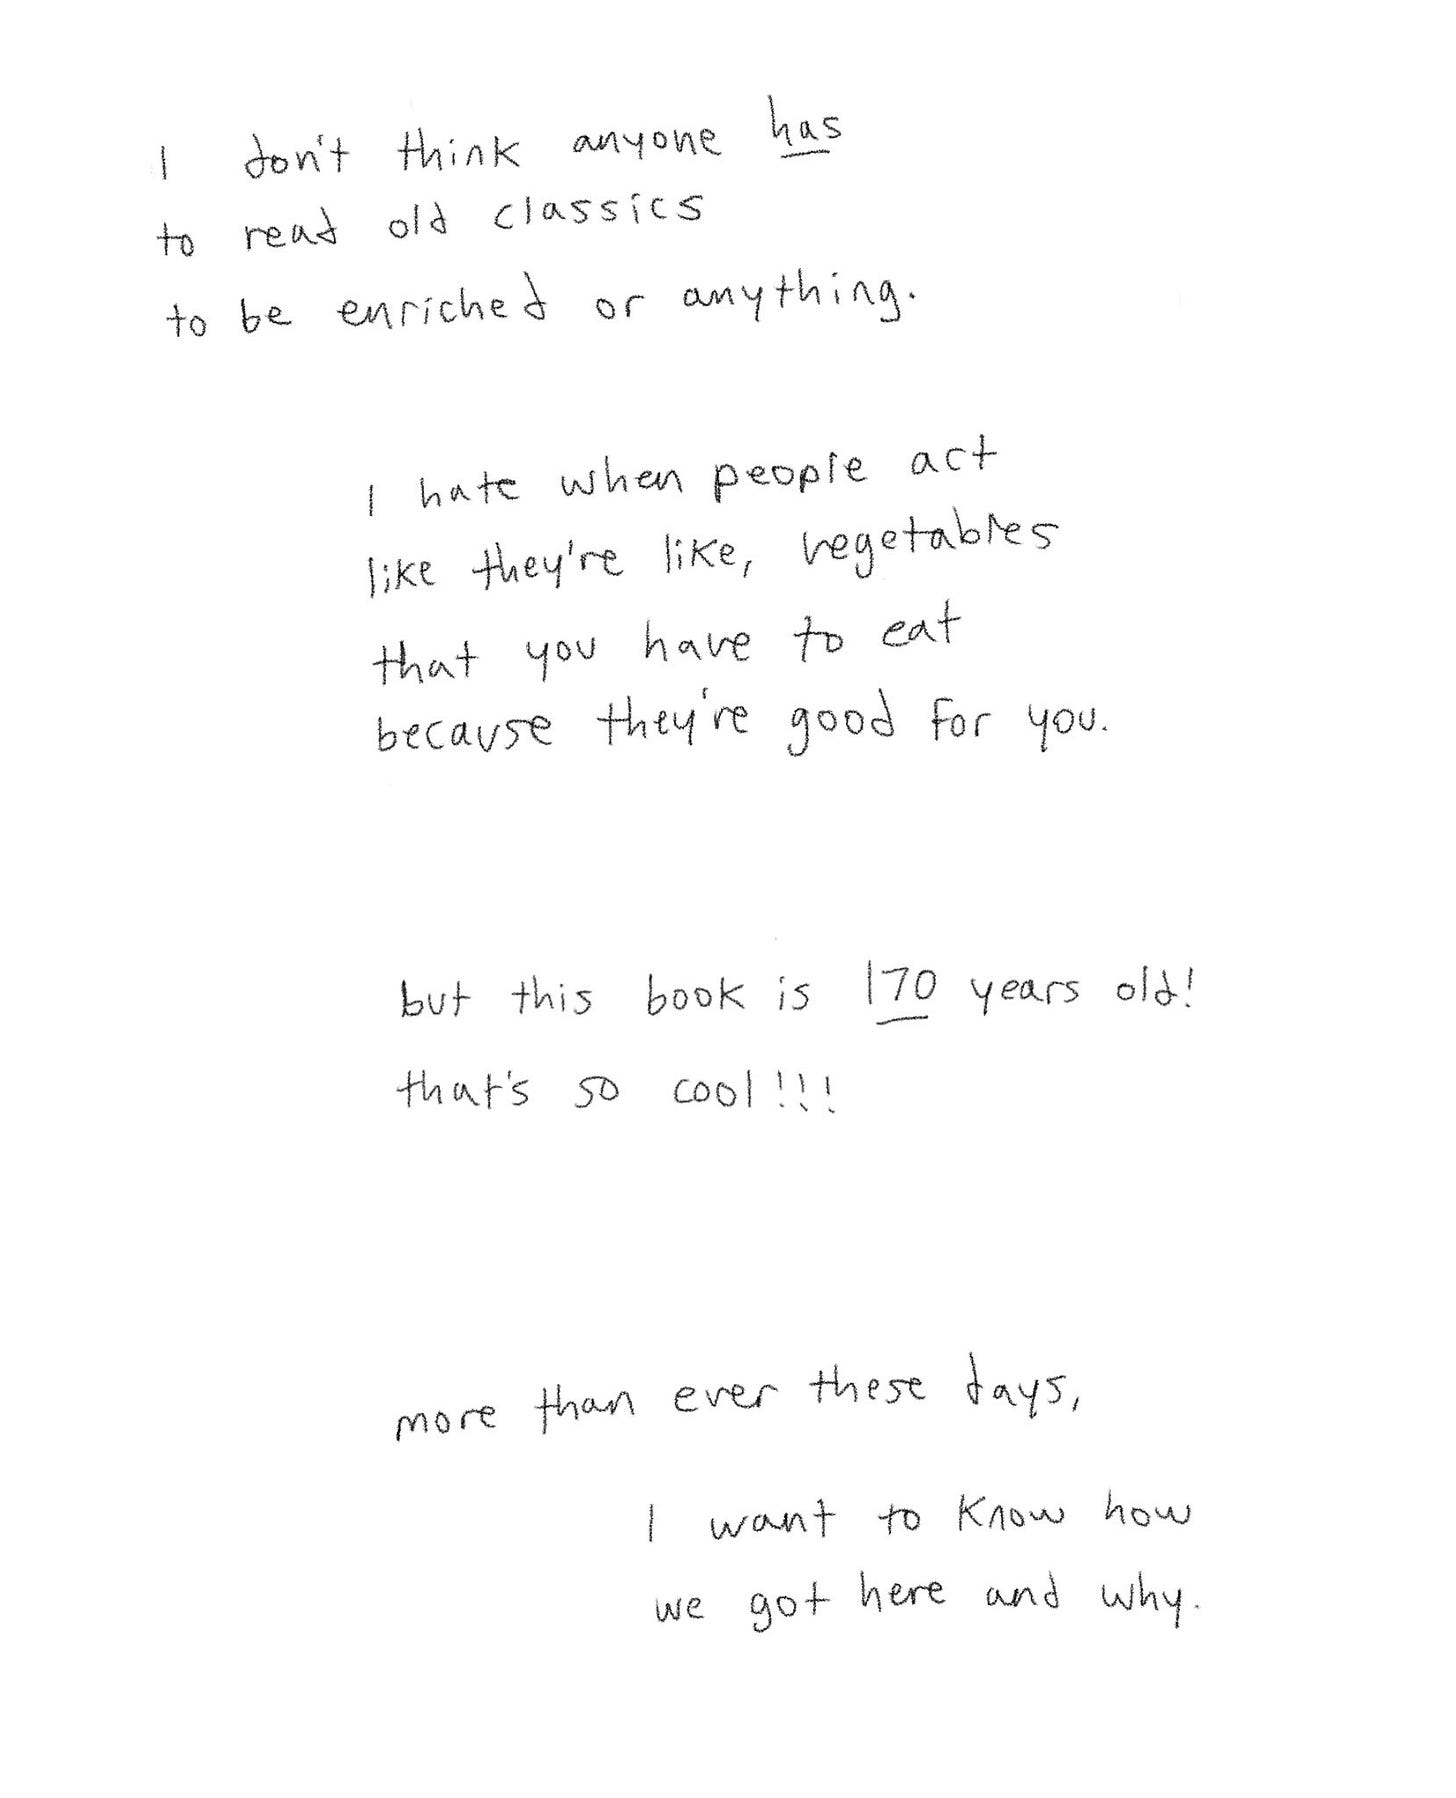 I don't think anyone has
to read old classics
to be enriched or anything.
I hate when people act
like they're like, vegetables
that you have to eat
because they're good for you.
but this book is 170 years old!
that's so cool!!!
more than ever these days,
I want to know how
we got here and why.